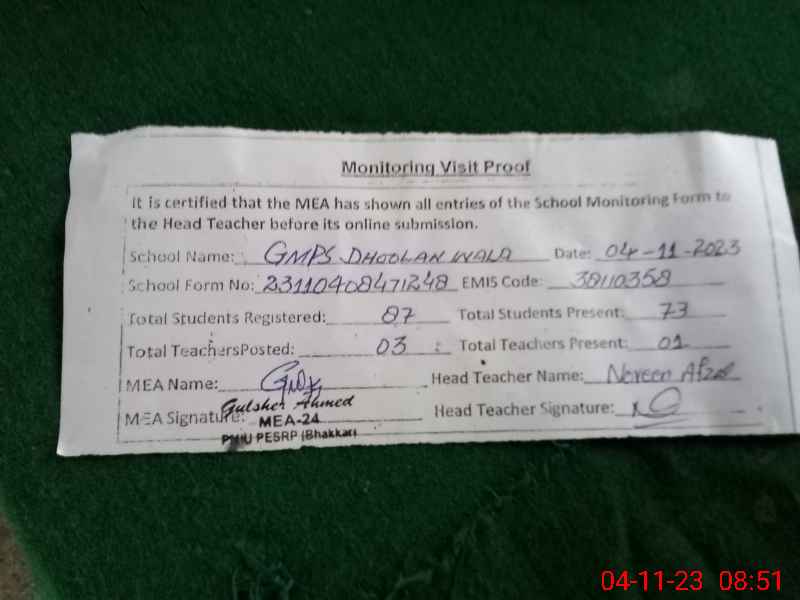 Monitoring Visit Proof
It is certified that the MEA has shown all entries of the School Monitoring Form to
the Head Teacher before its online submission.
School Name: GMPS DHOOLAN WALA Date: 04-11-2023
School Form No: 23110408471248 EMIS Code: 38110358
Total Students Registered: 87 Total Students Present: 73
Total TeachersPosted: 03 Total Teachers Present: 01
MEA Name: Head Teacher Name: Noreen Afzal
Gulsher Ahmed
MEA Signature: MEA-24 Head Teacher Signature:
PMIU PESRP (Bhakkar)
04-11-23 08:51